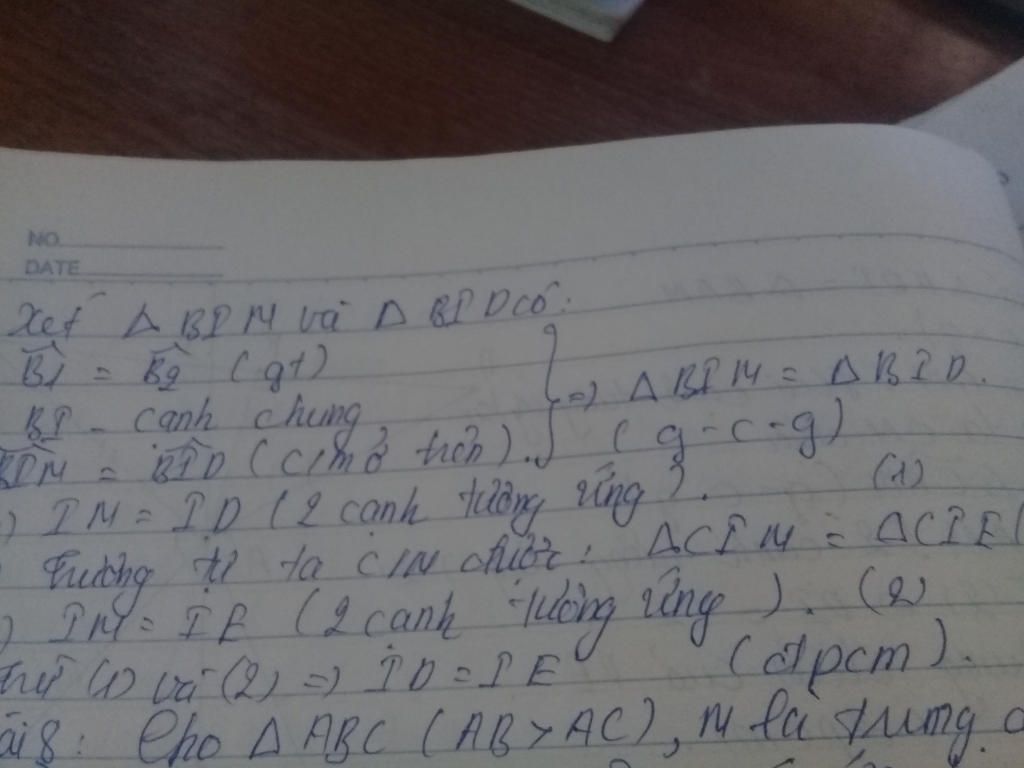 NO
DATE
Xét Δ BIM và Δ BID có:
B1 = B2 (gt)
BI - cạnh chung
BIM = BID (c/m ở trên).
=> Δ BIM = Δ BID.
(g-c-g)
) IM = ID (2 cạnh tương ứng). (1)
Tương tự ta c/m được: ΔCIM = ΔCIE (
) IM = IE (2 cạnh tương ứng). (2)
Từ (1) và (2) => ID = IE (đpcm).
ài 8: Cho Δ ABC (AB > AC), M là trung